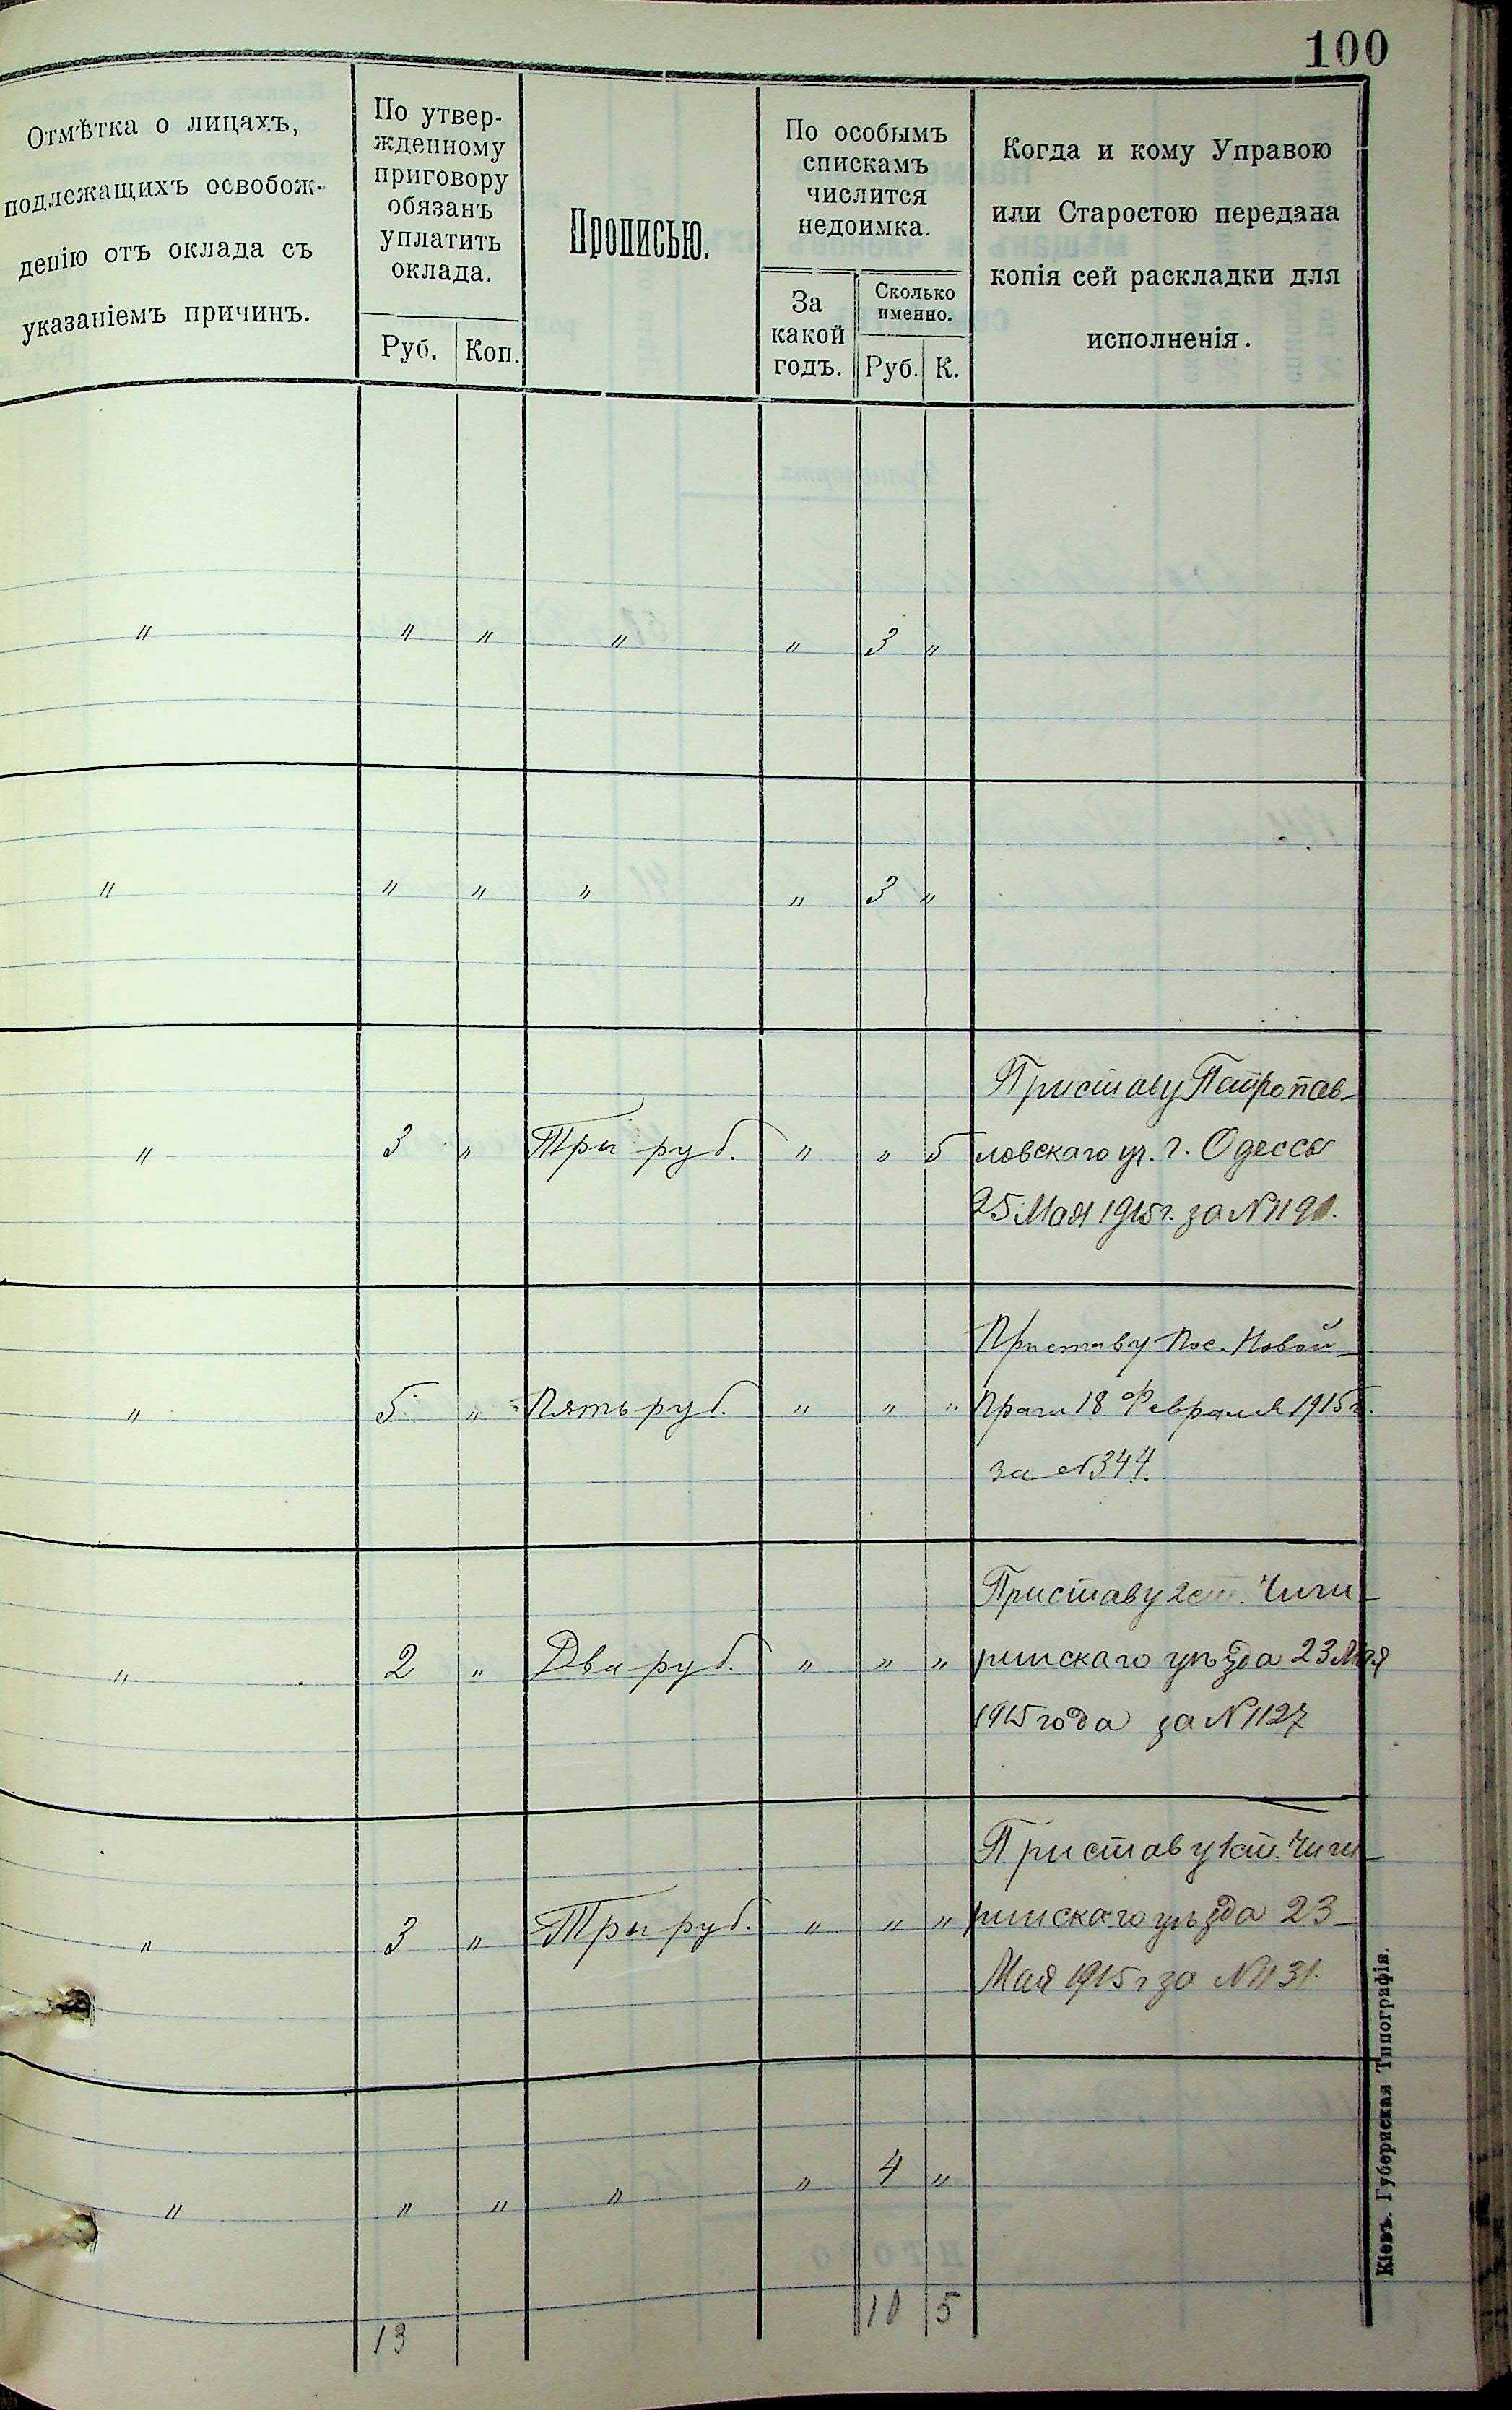 100
Отмѣтка о лицахъ,
подлежащихъ освобож-
денію отъ оклада съ
указаніемъ причинъ.
По утвер-
жденному
приговору
обязанъ
уплатить
оклада.
Руб. Коп.
Прописью.
По особымъ
спискамъ
числится
недоимка.
За
какой
годъ.
Сколько
именно.
Руб. К.
Когда и кому Управою
или Старостою передана
копія сей раскладки для
исполненія.
" " " " " 3 "
" " " " " 3 "
" 3 " Три руб. " " 5
Приставу Петропав-
ловскаго уч. г. Одессы
25 Мая 1915 г. за №
" 5 " Пять руб. " " "
Приставу пос. Новой
Праги 18 Февраля 1915 г.
за № 344.
" 2 " Два руб. " " "
Приставу 2 ст. Чиги-
ринскаго уѣзда 23 Мая
1915 года за № 1127
" 3 " Три руб. " " "
Приставу 1 ст. Чиги-
ринскаго уѣзда 23
Мая 1915 г за № 1131.
" " " " " 4 "
13 10 5
Кіевъ. Губернская Типографія.